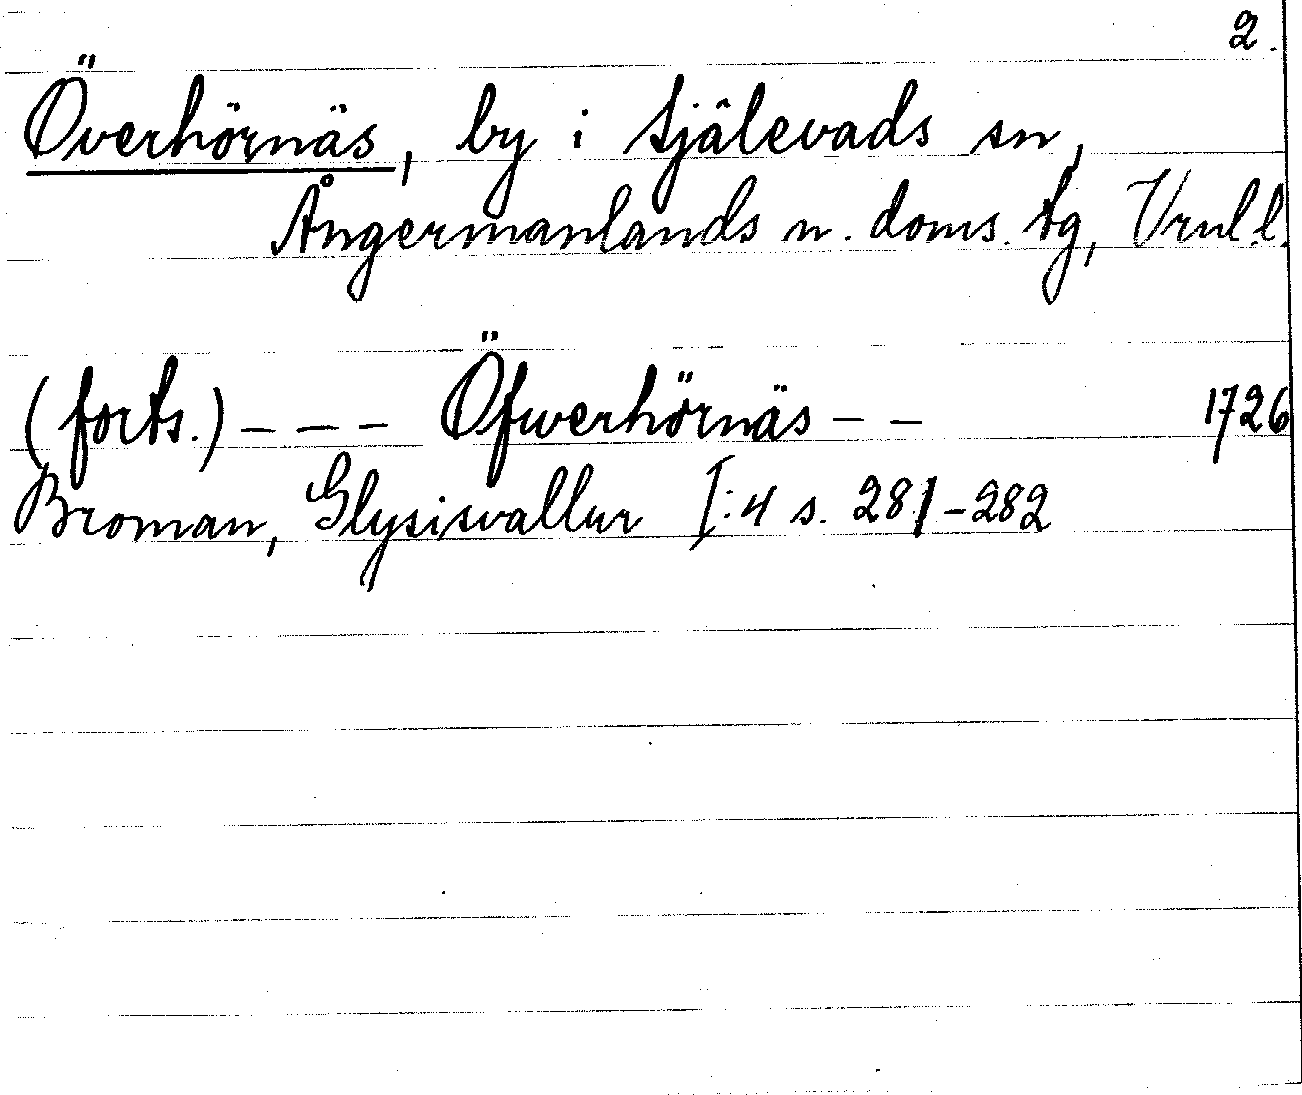 2.
Överhörnäs, by i Själevads sn,
Ångermanlands n. doms. tg, Vnl.l.
(forts.) – – – Öfwerhörnäs – – 1726
Broman, Glysisvallur I:4 s. 281–282